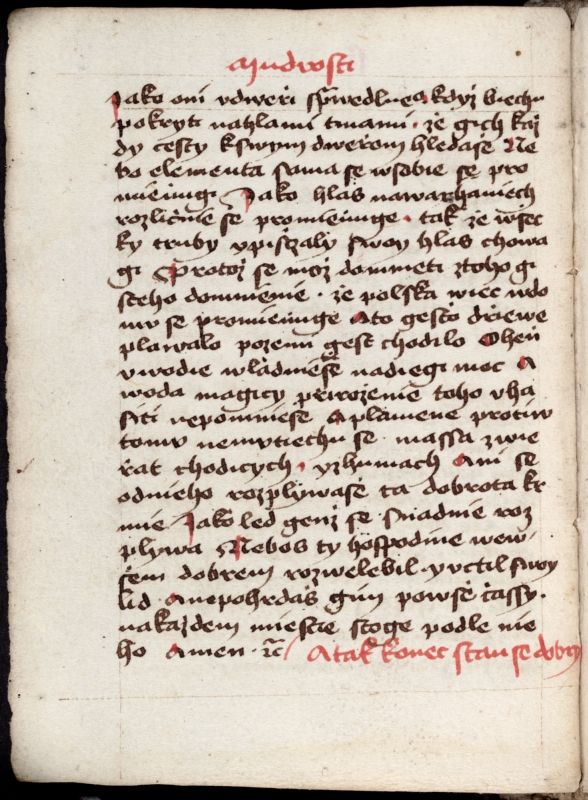 Mudrosti
Jako oni vdweři sp̃rwedlneº kdyz biechu
pokryti nahlami tmami · ze gich kaz
dy cesty kswym dwerom hledaše Ne
bo elementa sama se wsobie se pro
mieinugi Jako hlas nawarhaniech
rozlicnie se promieinuge · tak ze wšec
ky truby vpisczaly swoy hlas chowa
gi Protoz se moz domnieti ztoho gi
steho domnienie · ze polska wiec wdo
nu se promieinuge Ato gesto drziewe
plawalo pozemi gest chodilo Ohen
vwodie wladnieše nadiegi moc A
woda magicy przirozenie toho vha
siti nepomniese A plamene protiw
tomu nemrtiechu se · massa zwie
řat chodicych · yzhumach Ani se
odnieho rozplywase ta dobrota kr
mie Jako led genz se snadnie roz
plywa Nebos ty hospodine wew
šem dobrem rozwelebil · yvctil swoy
lid Anepohrdas gim powše časy ·
nakazdem miestie stoge podle nie
ho Amen · rc̃ Atak konec stan se dobry